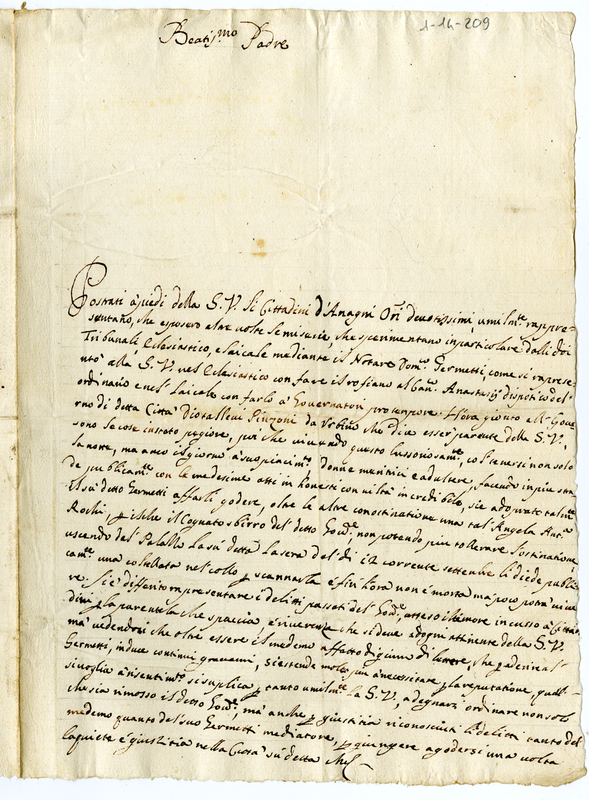 1-14-209
Beatis.mo Padre
Postrati à piedi della S.V. li Cittadini d'Anagni Ori devotissimi, umilm.te rappre-
sentano, che esposero altre volte le miserie, che sperimentano in particolare dalli doi
Tribunali Eclesiastico, e laicale mediante il Notaro Dom.o Germetti, come si naprese-
ntò alla S.V. nel Eclesiastico con fare il rofiano al Can.co Anastasij dispotico del
ordinario e nel laicale con farlo à Governatori pro tempore. Hora gionto Mr Gove
rno di detta Città Diotallevi Pinzoni da Urbino che dice esser parente della S.V.,
sono le cose in stato pegiore, poi che vivendo questo lussoriosam.te, col tenersi non solo
la notte, ma anco il giorno à suo piacim.to donne meretrici e adultere, facendo in piu ...
de publicam.te con le medesime atti in honesti con viltà incredibile, si è adoprato talm.te
il su detto Germetti affarli godere, oltre le altre con ostinatione una tal' Angela Ant.a
Rochi, che il Cognato sbirro del detto Gov.re non potendo piu tollerare l'ostinatione
uscendo dal Palazzo la su detta la sera del dì 12 corrente settembre, li diede publi
cam.te una coltellata nel collo p scannarla e fin hora non è morta ma poco potrà vive
re. Si è differito rapresentare i delitti passati del Gov.re, atteso il timore incusso à Cittad
dini p la parentela che spaccia, e riverenza che si deve adogni attinente della S.V.
mà vedendosi che oltre essere il medemo affatto digiuno di lettere, che p aderire al
Germetti, induce continui gravami, si estende molto piu à necessitare p la reputatione, qual-
sivoglia à risentim.to si suplica p tanto umilm.te la S.V. a degnarsi ordinare non solo
che sia rimosso il detto Gov.re, mà anche p giustitia riconosciuti li delitti tanto del
medemo quanto del suo Germetti mediatore, p giungere à godersi una volta
la quiete e giustitia nella Città su detta Che